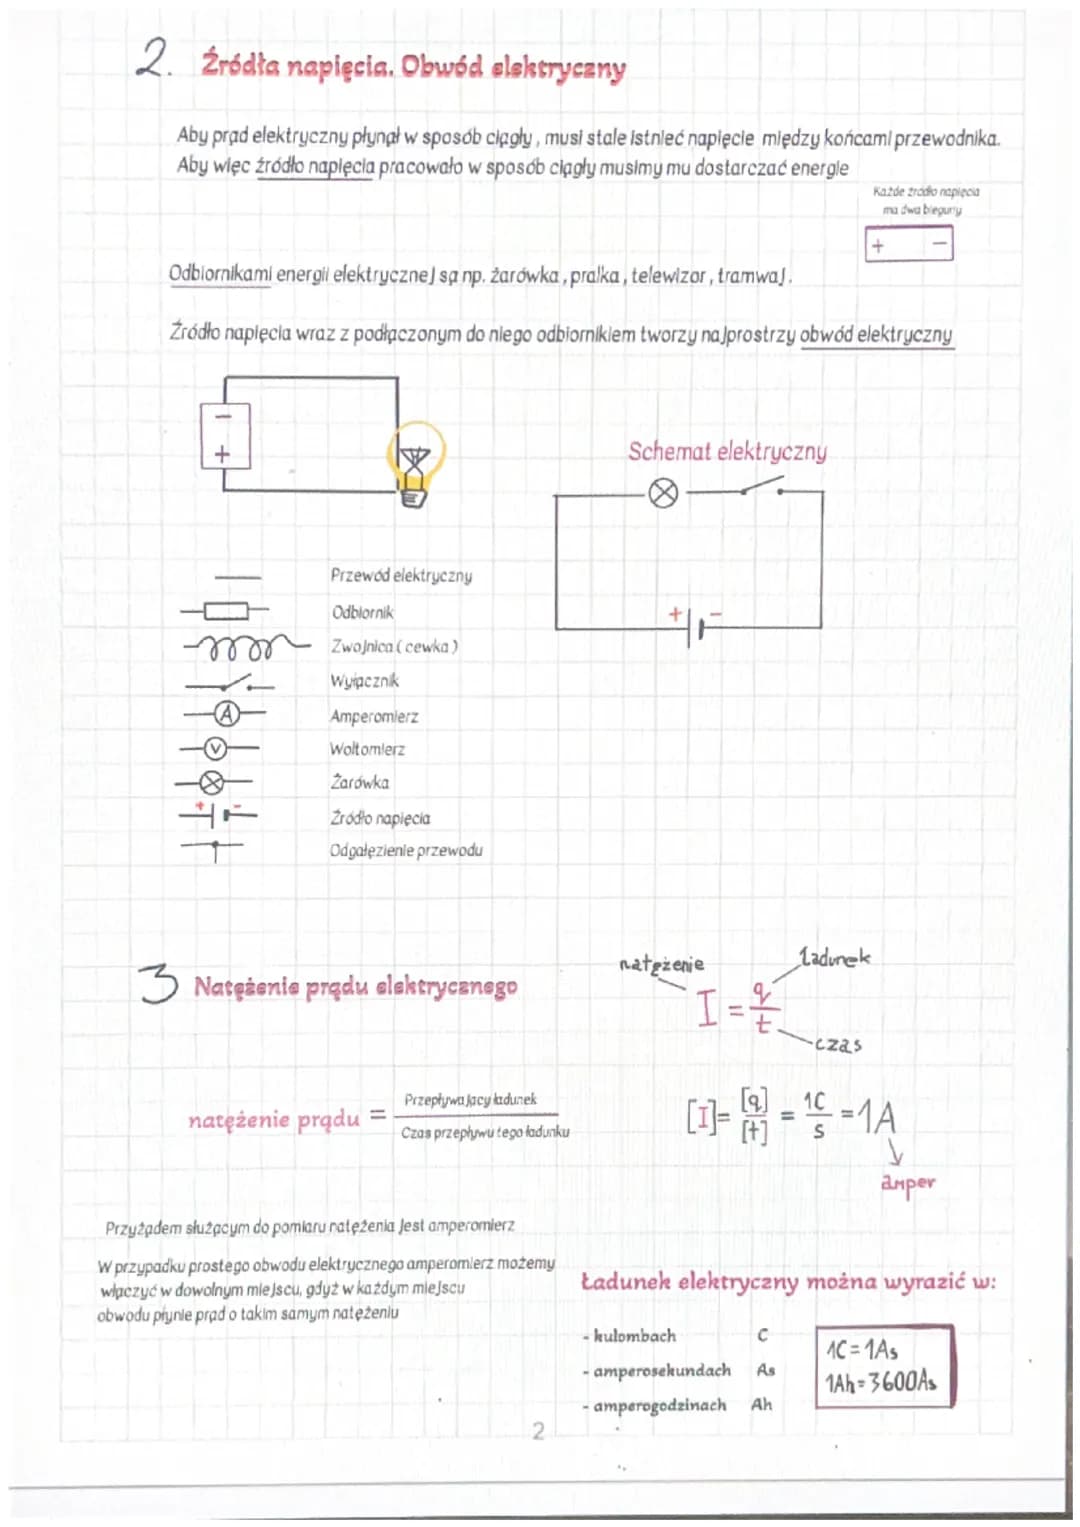 2. Źródła napięcia. Obwód elektryczny
Aby prąd elektryczny płynął w sposób ciągły, musi stale istnieć napięcie między końcami przewodnika.
Aby więc źródło napięcia pracowało w sposób ciągły musimy mu dostarczać energie
Każde źródło napięcia
ma dwa bieguny
+ −
Odbiornikami energii elektrycznej są np. żarówka, pralka, telewizor, tramwaj.
Źródło napięcia wraz z podłączonym do niego odbiornikiem tworzy najprostrzy obwód elektryczny
−
+
Schemat elektryczny
+ −
Przewód elektryczny
Odbiornik
Zwojnica (cewka)
Wyłącznik
A Amperomierz
V Woltomierz
Żarówka
+ − Źródło napięcia
Odgałęzienie przewodu
3 Natężenie prądu elektrycznego
natężenie ładunek
I = q/t
czas
natężenie prądu = Przepływający ładunek
Czas przepływu tego ładunku
[I] = [q]/[t] = 1C/s = 1A
amper
Przyżądem służącym do pomiaru natężenia jest amperomierz
W przypadku prostego obwodu elektrycznego amperomierz możemy
włączyć w dowolnym miejscu, gdyż w każdym miejscu
obwodu płynie prąd o takim samym natężeniu
Ładunek elektryczny można wyrazić w:
- kulombach C
- amperosekundach As
- amperogodzinach Ah
1C = 1As
1Ah = 3600As
2